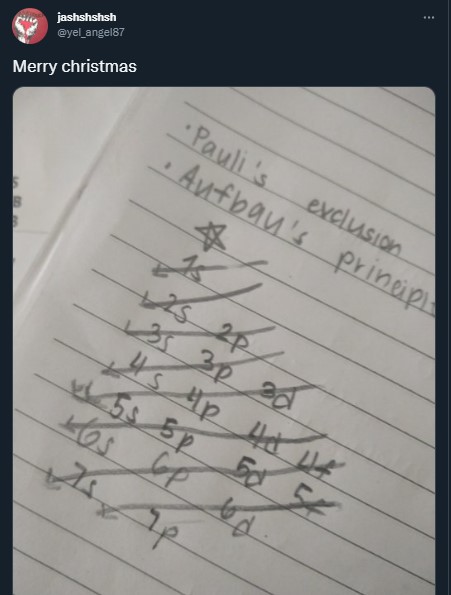 jashshshsh
@yel_angel87
Merry christmas
• Pauli's exclusion
• Aufbau's principl
1s
2s
3s 2p
4s 3p
5s 4p 3d
6s 5p 4d 4f
7s 6p 5d 5f
7p 6d